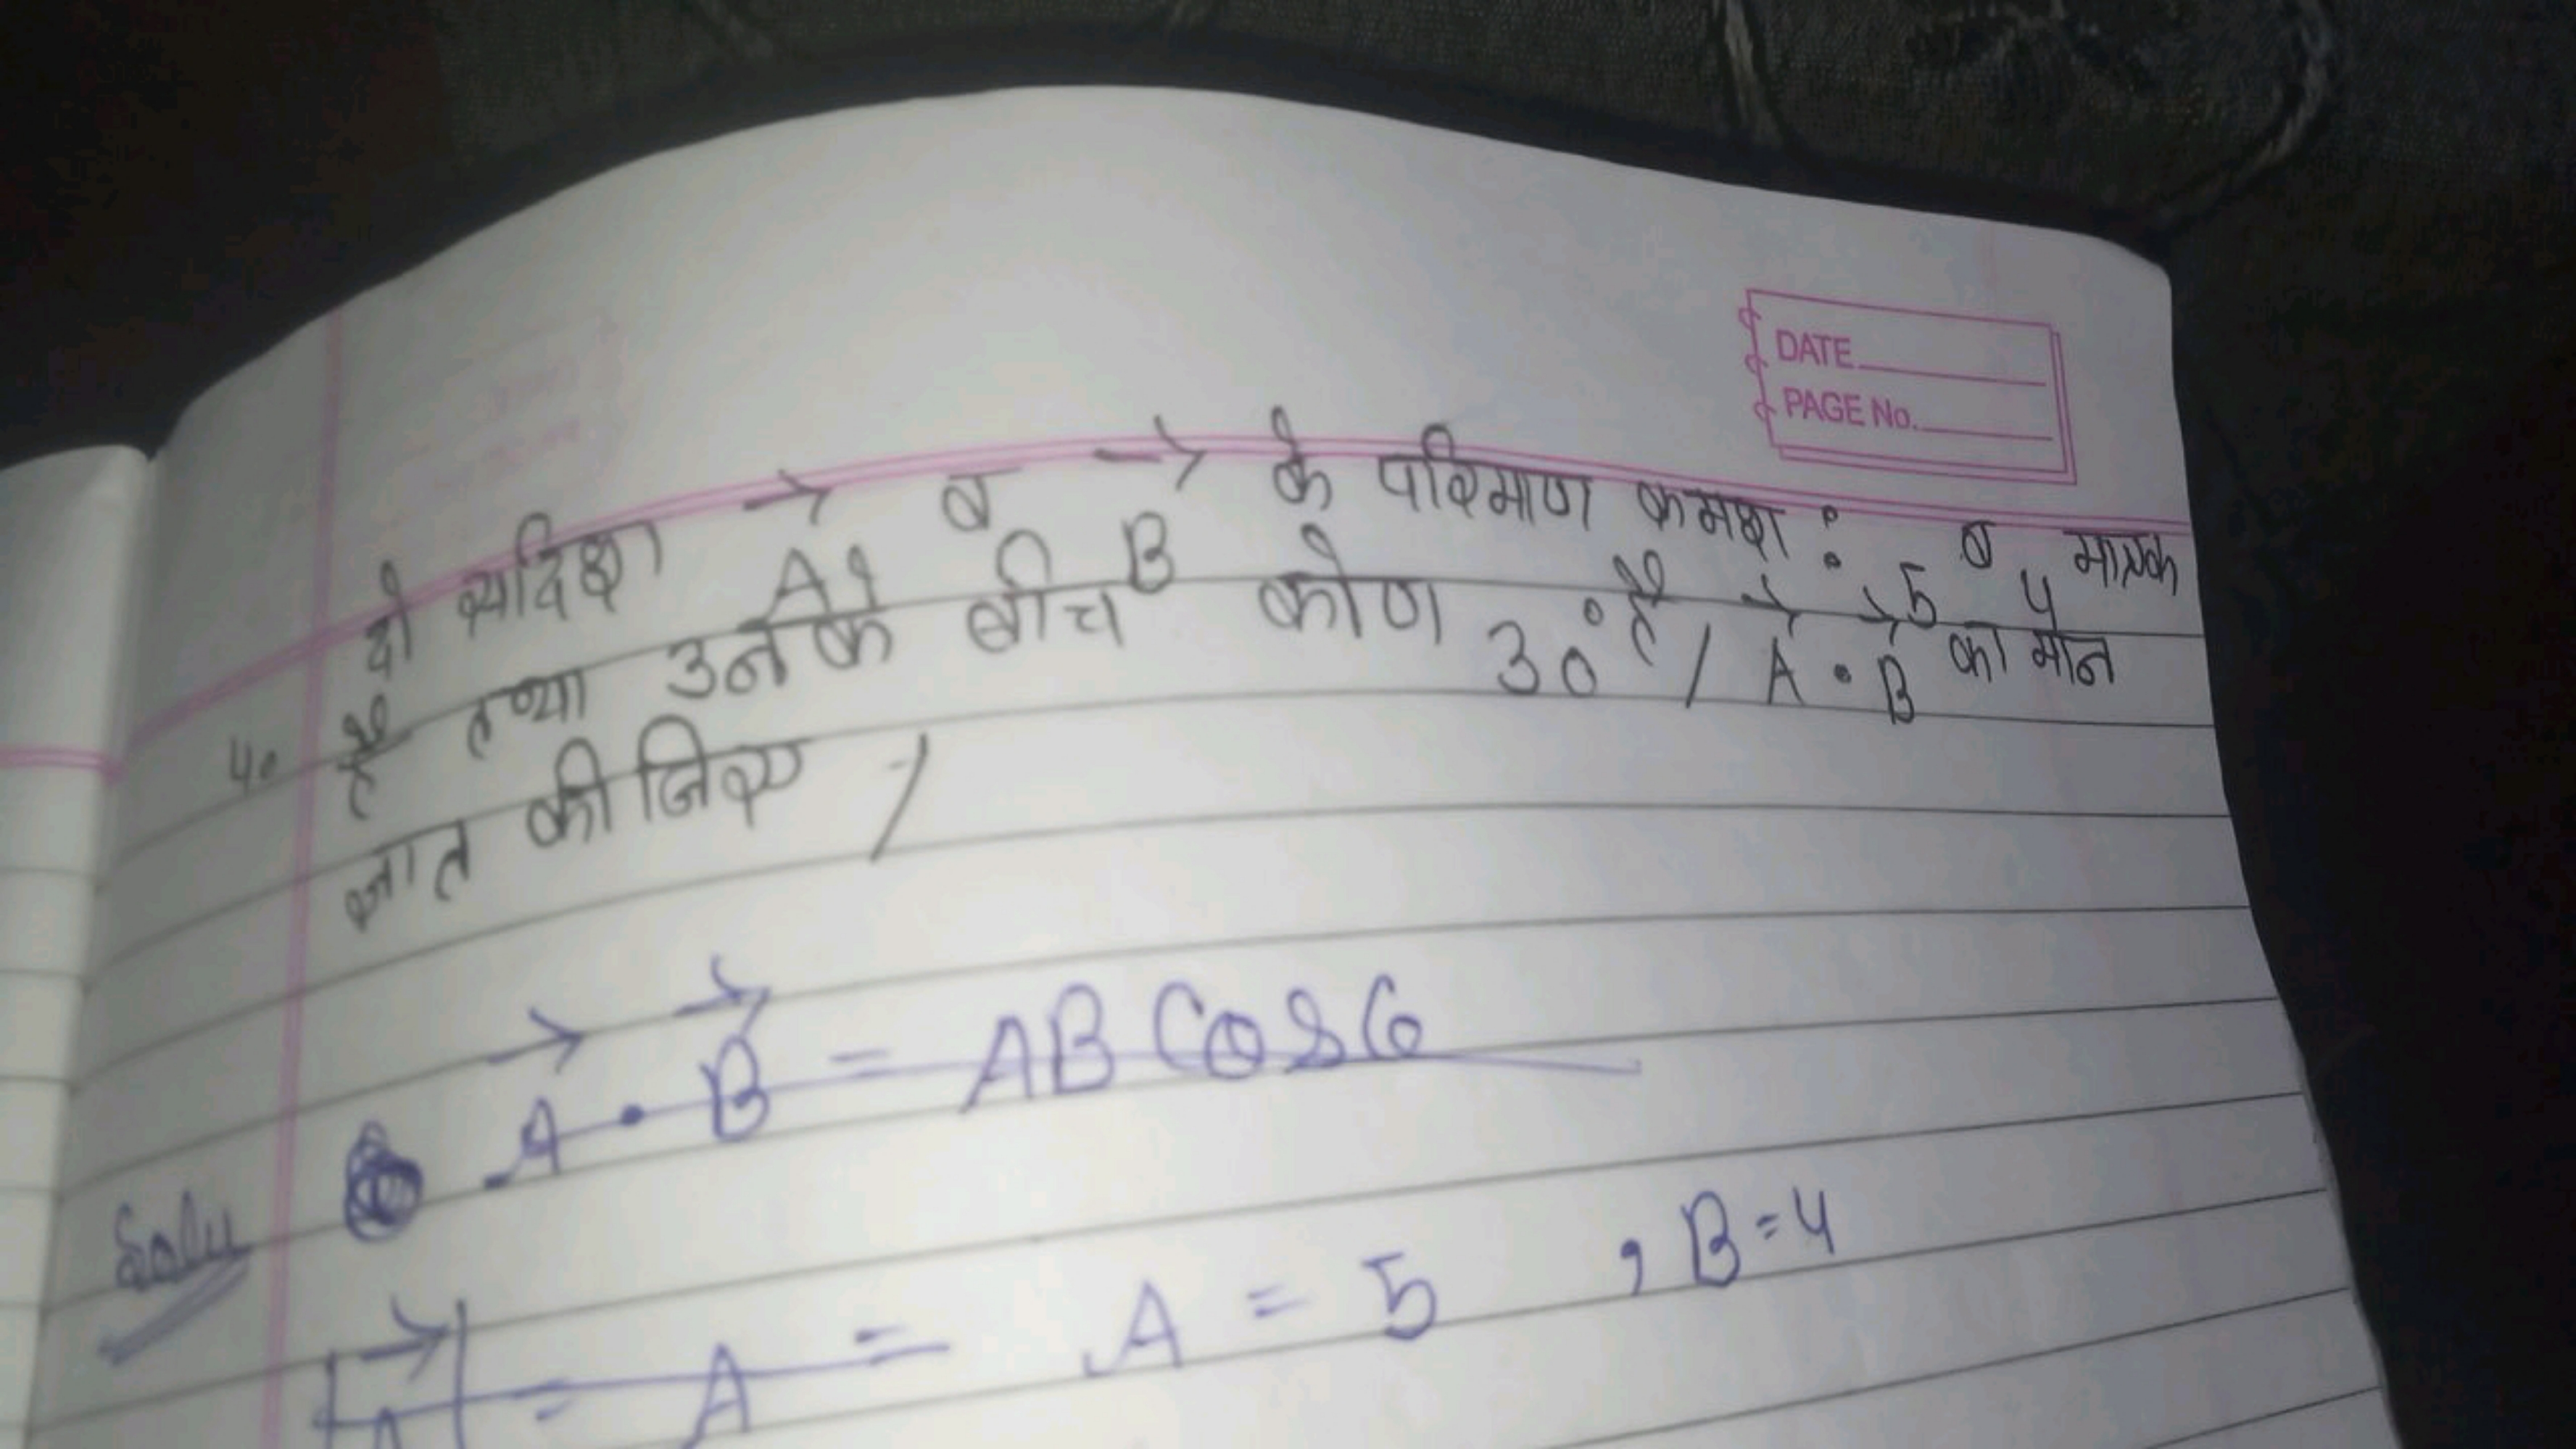 DATE
PAGE No.
दो सदिश A→ व B→ के परिमाण क्रमश: 5 व 4 मात्रक
4. है तथा उनके बीच कोण 30° है / A→ • B→ का मान
ज्ञात कीजिए /
Solu A→ • B→ = AB Cos
= A = A = 5 , B = 4